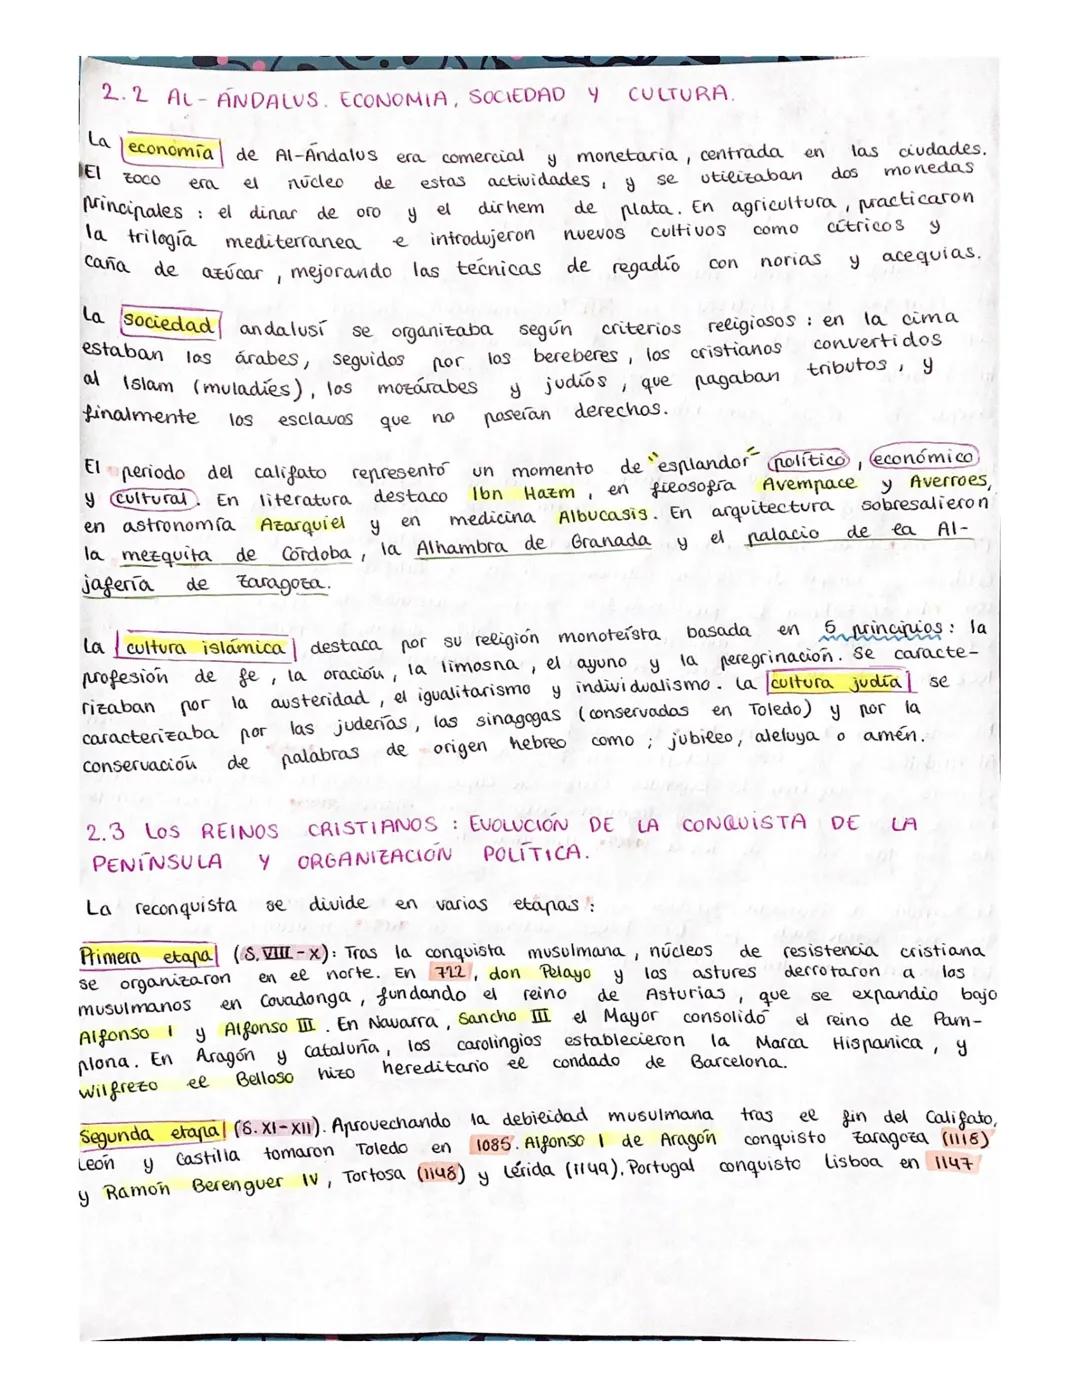 2.2 AL-ÁNDALUS. ECONOMIA, SOCIEDAD Y CULTURA.
La economía de Al-Ándalus era comercial y monetaria, centrada en las ciudades.
El zoco era el núcleo de estas actividades, y se utilizaban dos monedas
principales: el dinar de oro y el dirhem de plata. En agricultura, practicaron
la trilogía mediterranea e introdujeron nuevos cultivos como cítricos y
caña de azúcar, mejorando las técnicas de regadío con norias y acequias.
La sociedad andalusí se organizaba según criterios religiosos: en la cima
estaban los árabes, seguidos por los bereberes, los cristianos convertidos
al Islam (muladíes), los mozárabes y judíos, que pagaban tributos, y
finalmente los esclavos que no poseían derechos.
El periodo del califato representó un momento de "esplandor" político, económico
y cultural. En literatura destaco Ibn Hazm, en filosofía Avempace y Averroes,
en astronomía Azarquiel y en medicina Albucasis. En arquitectura sobresalieron
la mezquita de Córdoba, la Alhambra de Granada y el palacio de la Al-
jafería de Zaragoza.
La cultura islámica destaca por su religión monoteísta basada en 5 principios: la
profesión de fe, la oración, la limosna, el ayuno y la peregrinación. Se caracte-
rizaban por la austeridad, el igualitarismo y individualismo. La cultura judía se
caracterizaba por las juderías, las sinagogas (conservadas en Toledo) y por la
conservación de palabras de origen hebreo como; jubileo, aleluya o amén.
2.3 LOS REINOS CRISTIANOS: EVOLUCIÓN DE LA CONQUISTA DE LA
PENÍNSULA Y ORGANIZACIÓN POLÍTICA.
La reconquista se divide en varias etapas:
Primera etapa (S. VIII-X): Tras la conquista musulmana, núcleos de resistencia cristiana
se organizaron en el norte. En 722, don Pelayo y los astures derrotaron a los
musulmanos en Covadonga, fundando el reino de Asturias, que se expandio bajo
Alfonso I y Alfonso III. En Navarra, Sancho III el Mayor consolidó el reino de Pam-
plona. En Aragón y Cataluña, los carolingios establecieron la Marca Hispanica, y
Wilfrezo el Belloso hizo hereditario el condado de Barcelona.
Segunda etapa (S. XI-XII). Aprovechando la debilidad musulmana tras el fin del Califato,
León y Castilla tomaron Toledo en 1085. Alfonso I de Aragón conquisto Zaragoza (1118)
y Ramón Berenguer IV, Tortosa (1148) y Lérida (1149). Portugal conquisto Lisboa en 1147